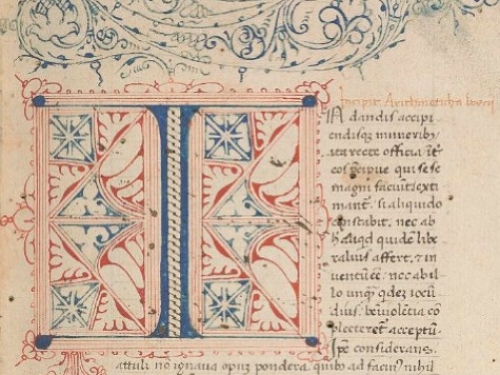 Incipit Arithmetica boetii
IN dandis accipi
endisqꝫ muneribꝫ
ita recte officia īt
eos p̄cipue qui sese
magni faciūt exti
mant᷑. si aliquido
constabit. nec ab
h̄ aliqd quidē libe
ralius affert, ⁊ in
ventū eē: nec ab il
lo unqꝫ qdez iocū
dius. beniuolētia cō
plecteret᷑ acceptū
Ip̄e considerans.
attuli nō ignaua opuꝫ pondera. quibꝫ ad facin᷒ nihil